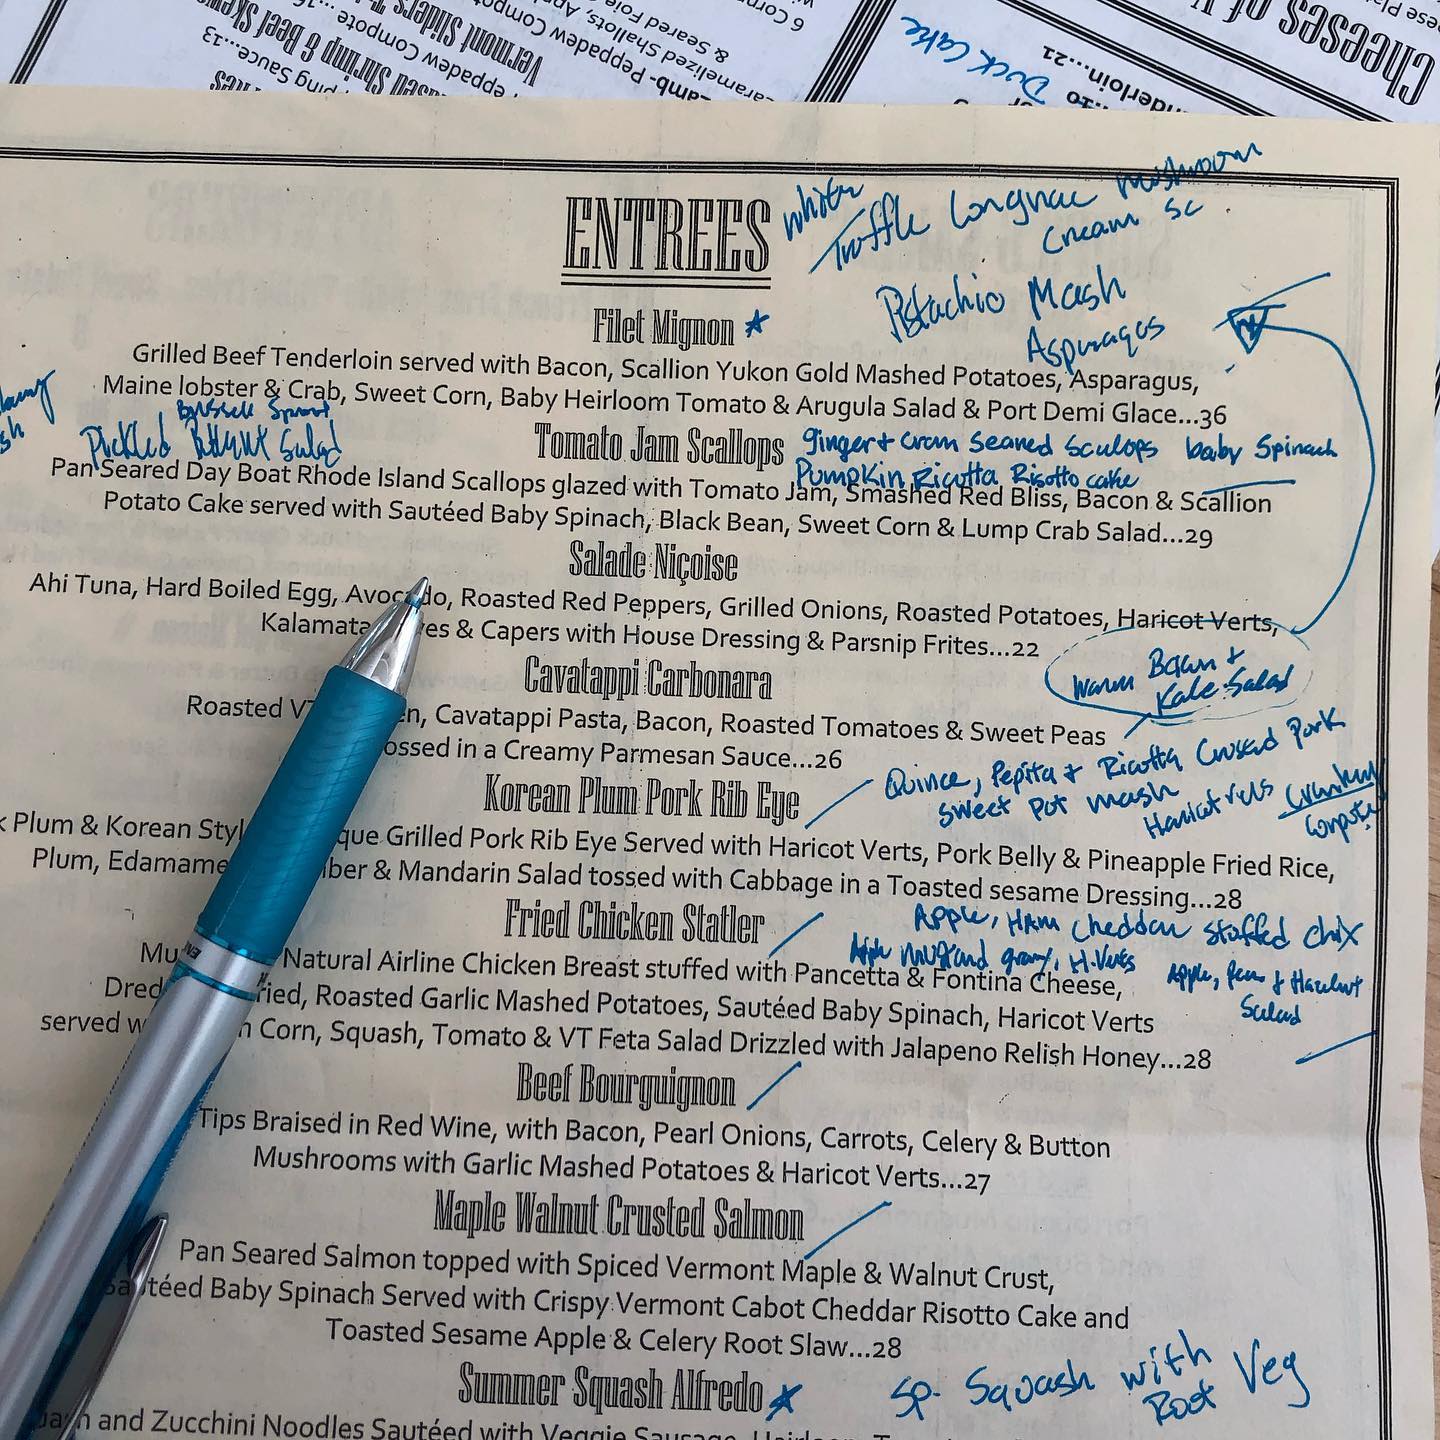 Cheeses of V
ese Plat
Duck Cake
nderloin...21
...10
6 Corn
aramelized Shallots, App
& Seared Foie
Lamb- Peppadew Compot
Vermont Sliders
Peppadew Compote ...
Shrimp & Beef Skew
ping Sauce...13
ENTREES
white
Truffle Congnac mushroom
Cream Sc
Pistachio Mash
Asparagus
Filet Mignon
Grilled Beef Tenderloin served with Bacon, Scallion Yukon Gold Mashed Potatoes, Asparagus,
Maine lobster & Crab, Sweet Corn, Baby Heirloom Tomato & Arugula Salad & Port Demi Glace...36
Brussel Sprout
Pickled Salad
Tomato Jam Scallops
ginger + cran Seared Scallops baby Spinach
Pumpkin Ricotta Risotto cake
Pan Seared Day Boat Rhode Island Scallops glazed with Tomato Jam, Smashed Red Bliss, Bacon & Scallion
Potato Cake served with Sautéed Baby Spinach, Black Bean, Sweet Corn & Lump Crab Salad...29
Salade Niçoise
Ahi Tuna, Hard Boiled Egg, Avocado, Roasted Red Peppers, Grilled Onions, Roasted Potatoes, Haricot Verts,
Kalamata ves & Capers with House Dressing & Parsnip Frites...22
Warm Bacon +
Kale Salad
Cavatappi Carbonara
Roasted VT en, Cavatappi Pasta, Bacon, Roasted Tomatoes & Sweet Peas
ossed in a Creamy Parmesan Sauce...26
Korean Plum Pork Rib Eye
Quince, Pepita + Ricotta Crusted Pork
Sweet Pot mash
Haricot verts
k Plum & Korean Styl que Grilled Pork Rib Eye Served with Haricot Verts, Pork Belly & Pineapple Fried Rice,
Plum, Edamame mber & Mandarin Salad tossed with Cabbage in a Toasted sesame Dressing...28
Fried Chicken Statler
Apple, HAM Cheddar Stuffed Chix
Apple mustard gravy, H. Verts
Apple, & Hazelnut
Salad
Mu Natural Airline Chicken Breast stuffed with Pancetta & Fontina Cheese,
Dred ried, Roasted Garlic Mashed Potatoes, Sautéed Baby Spinach, Haricot Verts
served w n Corn, Squash, Tomato & VT Feta Salad Drizzled with Jalapeno Relish Honey...28
Beef Bourguignon
Tips Braised in Red Wine, with Bacon, Pearl Onions, Carrots, Celery & Button
Mushrooms with Garlic Mashed Potatoes & Haricot Verts...27
Maple Walnut Crusted Salmon
Pan Seared Salmon topped with Spiced Vermont Maple & Walnut Crust,
Sautéed Baby Spinach Served with Crispy Vermont Cabot Cheddar Risotto Cake and
Toasted Sesame Apple & Celery Root Slaw...28
Summer Squash Alfredo
Sp. Squash with
Root Veg
uash and Zucchini Noodles Sautéed with Veggie Sausage, Heirloom